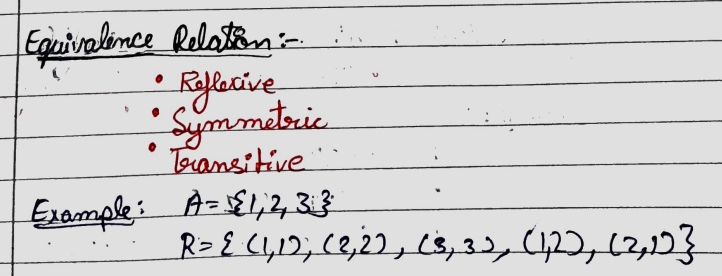 Equivalence Relation :-
• Reflexive
• Symmetric
• Transitive
Example: A = {1, 2, 3}
R = { (1,1), (2,2), (3,3), (1,2), (2,1)}